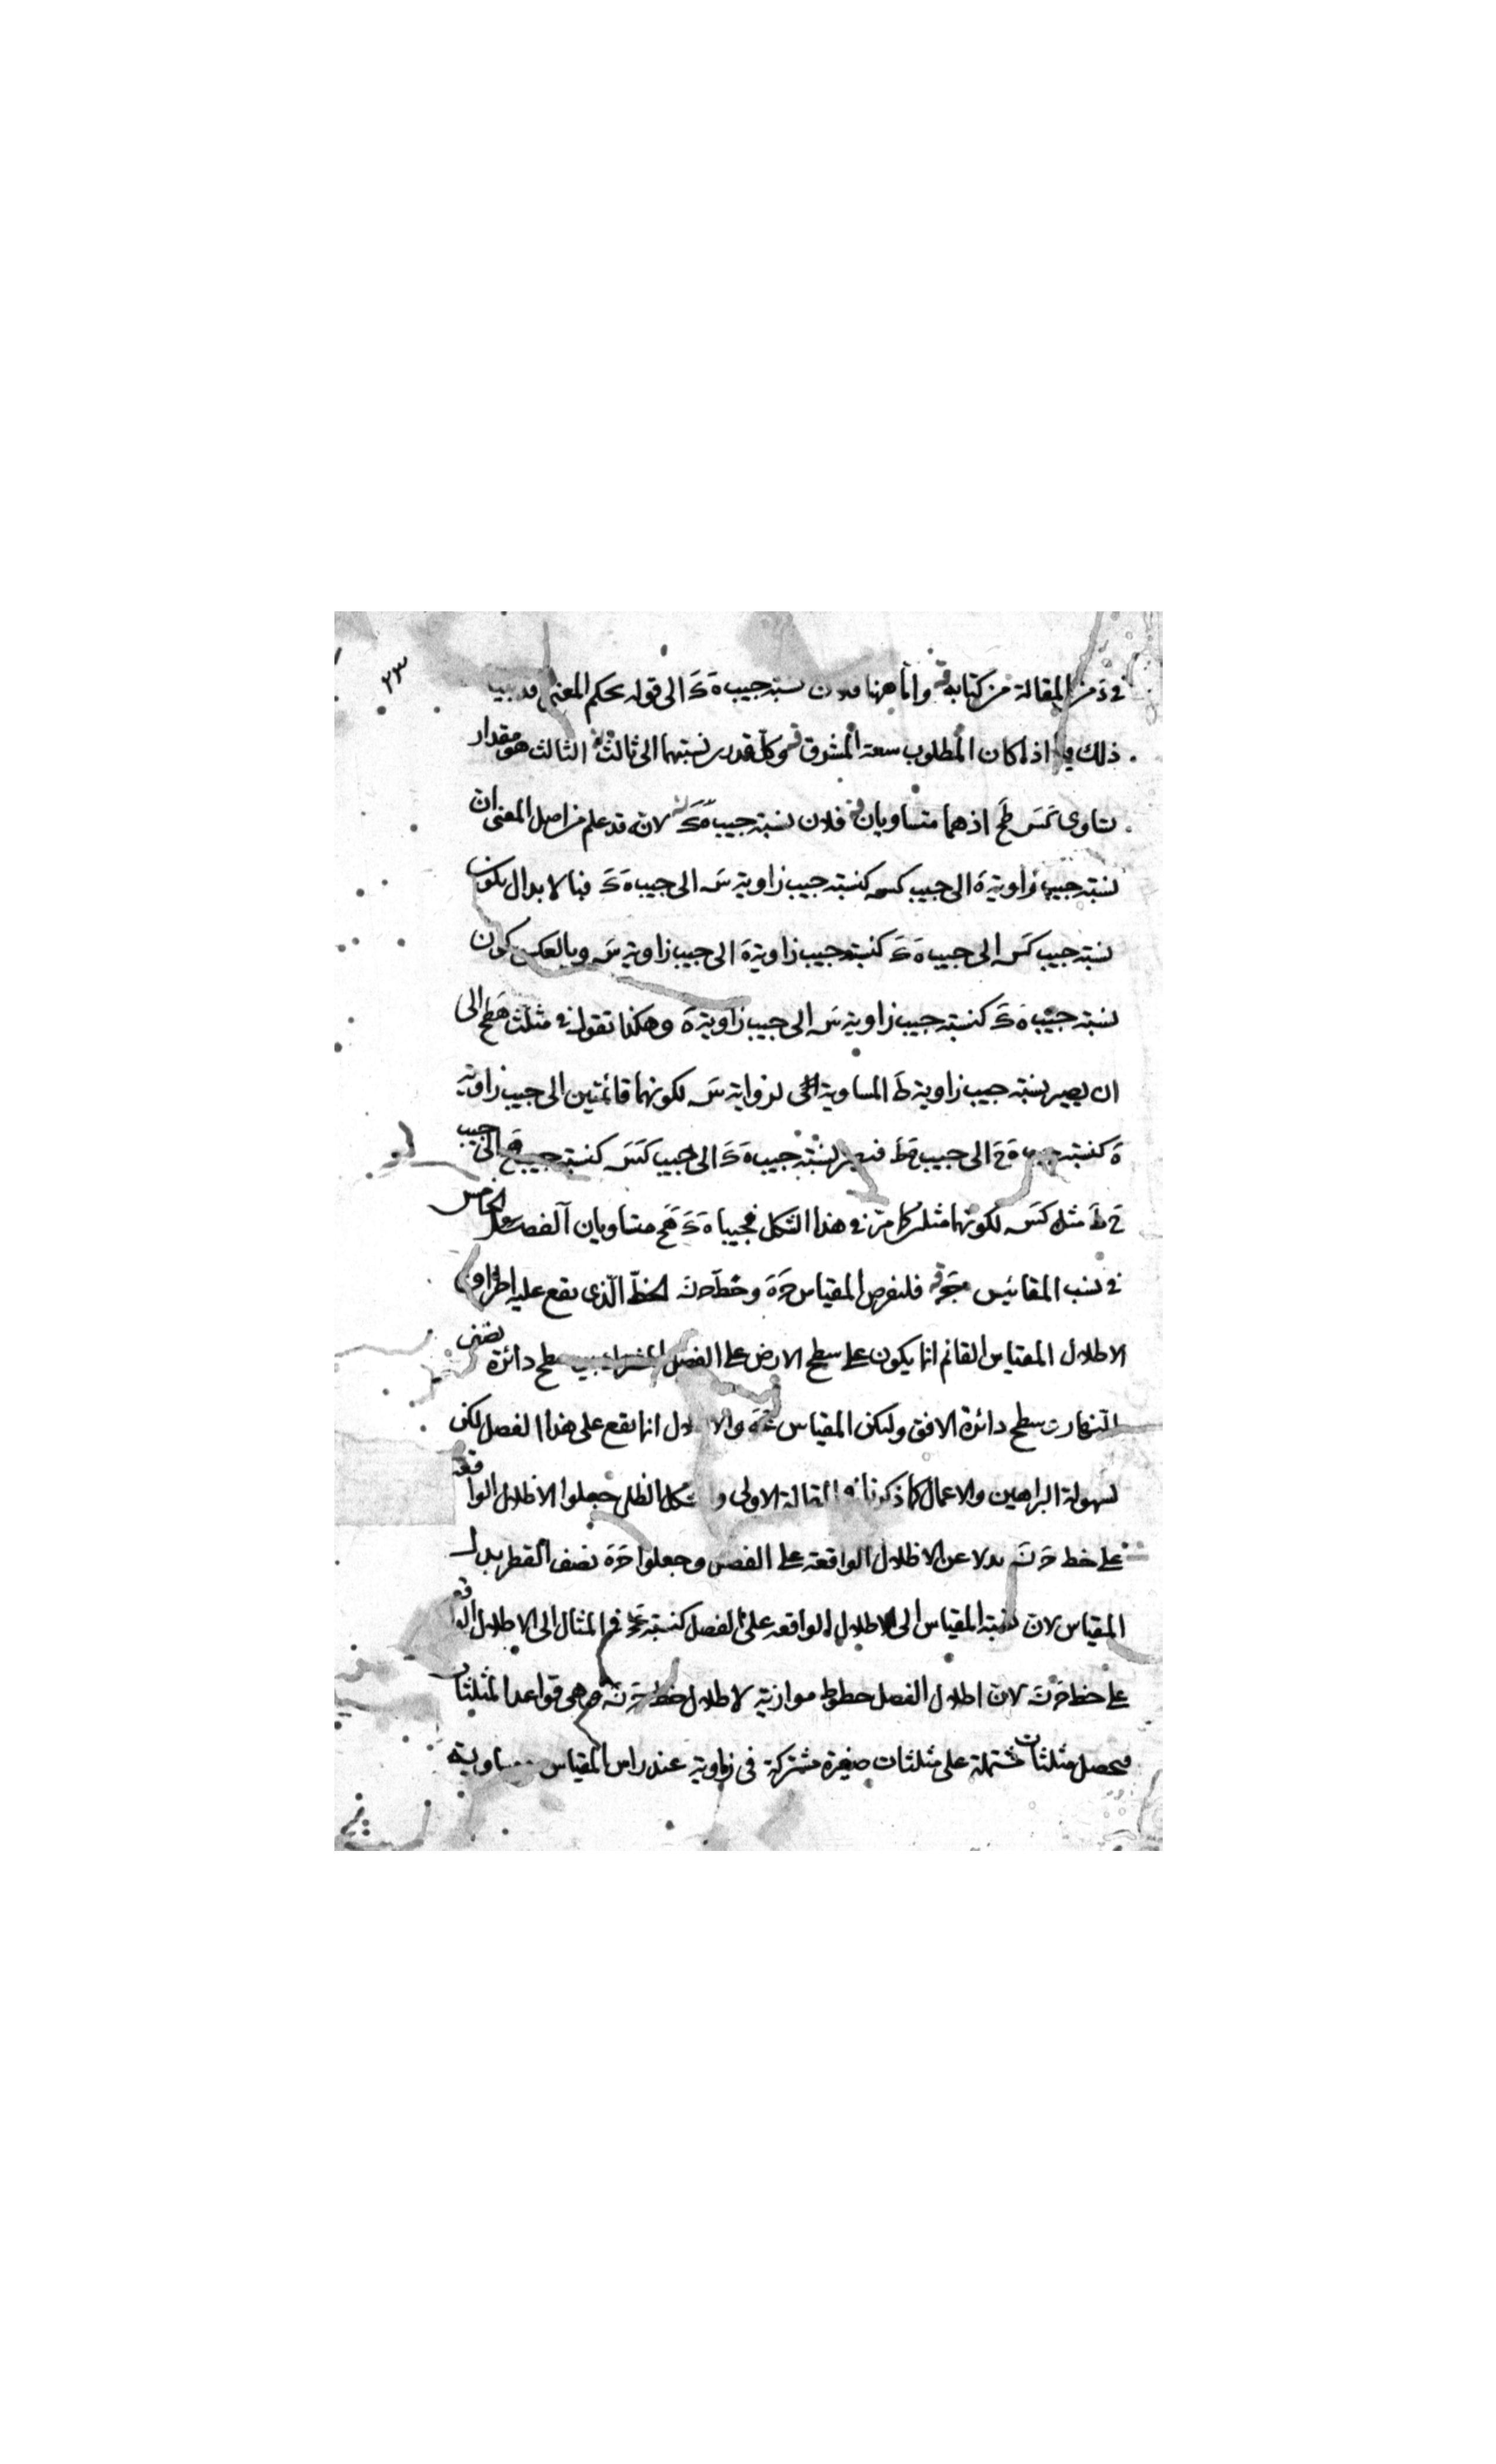 ٢٣
في ذمز المقالة من كتابه قه واما ههنا فلان نسبة جيب ه ك الى قوله بحكم المعنى قد بينا
ذلك فيما اذا كان المطلوب سعة المشرق قه وكل قدر نسبتهما الى ثالث الثالث هو مقدار
تساوى كس طح اذ هما متساويان قه فلان نسبة جيب ه ك لانه قد علم من اصل المعنى ان
نسبة جيب زاوية ه الى جيب كس كنسبة جيب زاوية س الى جيب ه ك فبالابدال يكون
نسبة جيب كس الى جيب ه ك كنسبة جيب زاوية ه الى جيب زاوية س وبالعكس يكون
نسبة جيب ه ك كنسبة جيب زاوية س الى جيب زاوية ه وهكذا نقول في مثلث هطح الى
ان يصير نسبة جيب زاوية ط المساوية لزواية س لكونهما قائمتين الى جيب زاوية
ه كنسبة جيب ه ح الى جيب ح ط فيصير نسبة جيب ه ك الى جيب كس كنسبة جيب هح الى جيب
ح ط مثل كس لكونهما مثله كما مر في هذا الشكل فجيبا ه ك هح متساويان الفصل الخامس
في نسب المقائيس قه فلنفرض المقياس حه وخط حث الخط الذى يقع عليه اطراف
الاظلال المقياس القائم انما يكون على سطح الارض على الفصل المشترك بين سطح دائرة نصف
النهار وسطح دائرة الافق وليكن المقياس والاظلال انما يقع على هذا الفصل لكن
لسهولة البراهين والاعمال كما ذكرنا في المقالة الاولى والشكل الظلى جعلوا الاظلال الواقعة
على خط حث بدلا عن الاظلال الواقعة على الفصل وجعلوا حه نصف القطر بدل
المقياس لان نسبة المقياس الى الاظلال الواقعة على الفصل كنسبة في المثال الى الاظلال الواقعة
على خط حث لان اظلال الفصل خطوط موازية لاظلال خط حث هى قواعد المثلثات
فيحصل مثلثات مشتملة على مثلثات صغيرة مشتركة فى زاوية عند راس المقياس متساوية